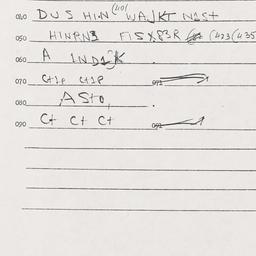 040 DUS HINN (401 WAJKT N1ST
050 HINPN3 FISX83R (423 (435
060 A IND1K
070 Ct1e Ct1P 071
080 ASto,
090 Ct Ct Ct 092